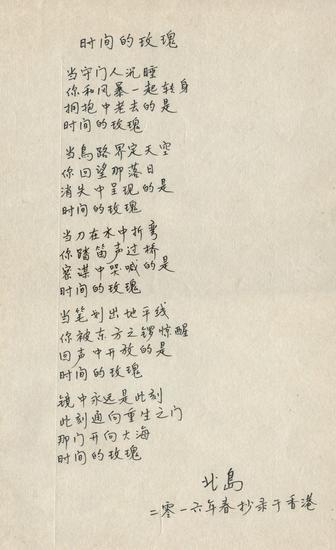 时间的玫瑰
当守门人沉睡
你和风暴一起转身
拥抱中老去的是
时间的玫瑰
当鳥路界定天空
你回望那落日
消失中呈现的是
时间的玫瑰
当刀在水中折弯
你踏笛声过桥
密谋中哭喊的是
时间的玫瑰
当笔划出地平线
你被东方之锣惊醒
回声中开放的是
时间的玫瑰
镜中永远是此刻
此刻通向重生之门
那门开向大海
时间的玫瑰
北島
二零一六年春抄录于香港